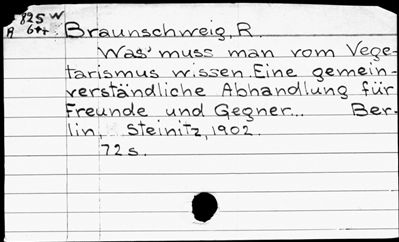 825 W
A 6++ Braunschweig, R.
Was muss man vom Vege-
tarismus wissen. Eine gemein-
verständliche Abhandlung für
Freunde und Gegner... Ber-
lin, Steinitz, 1902.
72 s.